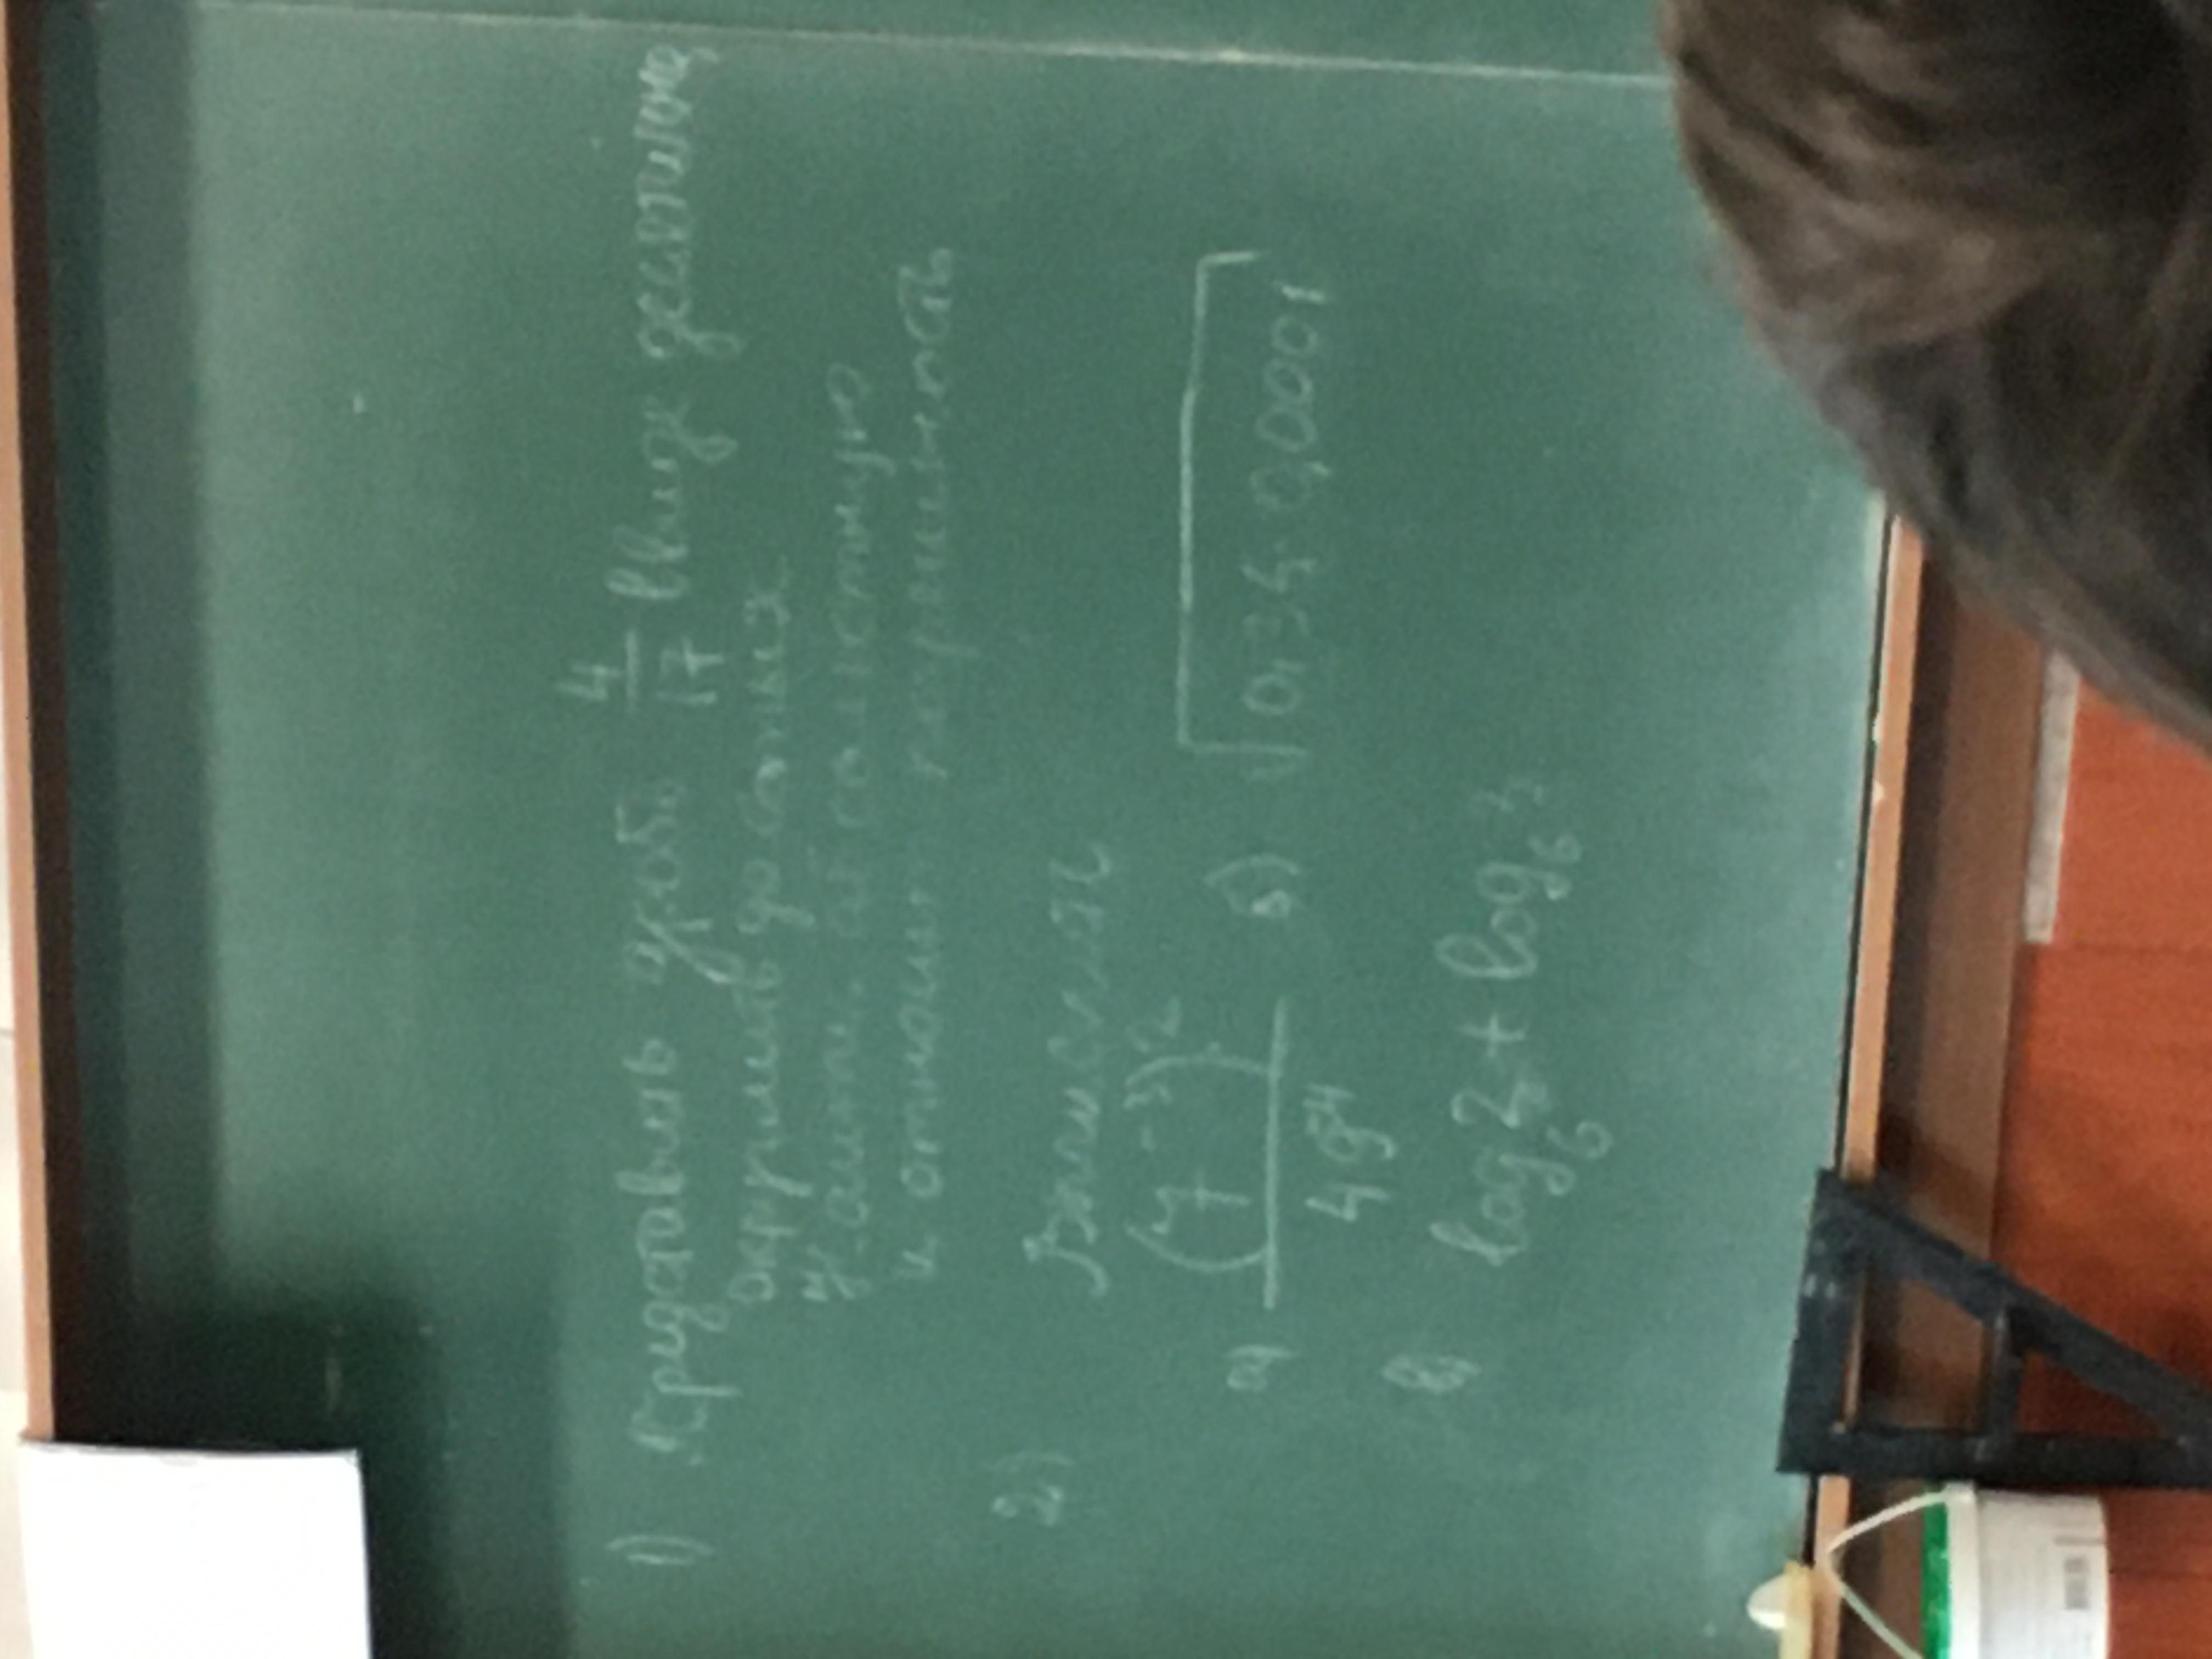 1) Представить дробь 4/17 ввиде десятичной
округлить до сотых
Найти абсолютную
и относит. погрешность
2) Вычислить
а) (7⁻³)² / 49⁻⁴ б) √0,25·0,0001
в) log₆2 + log₆3